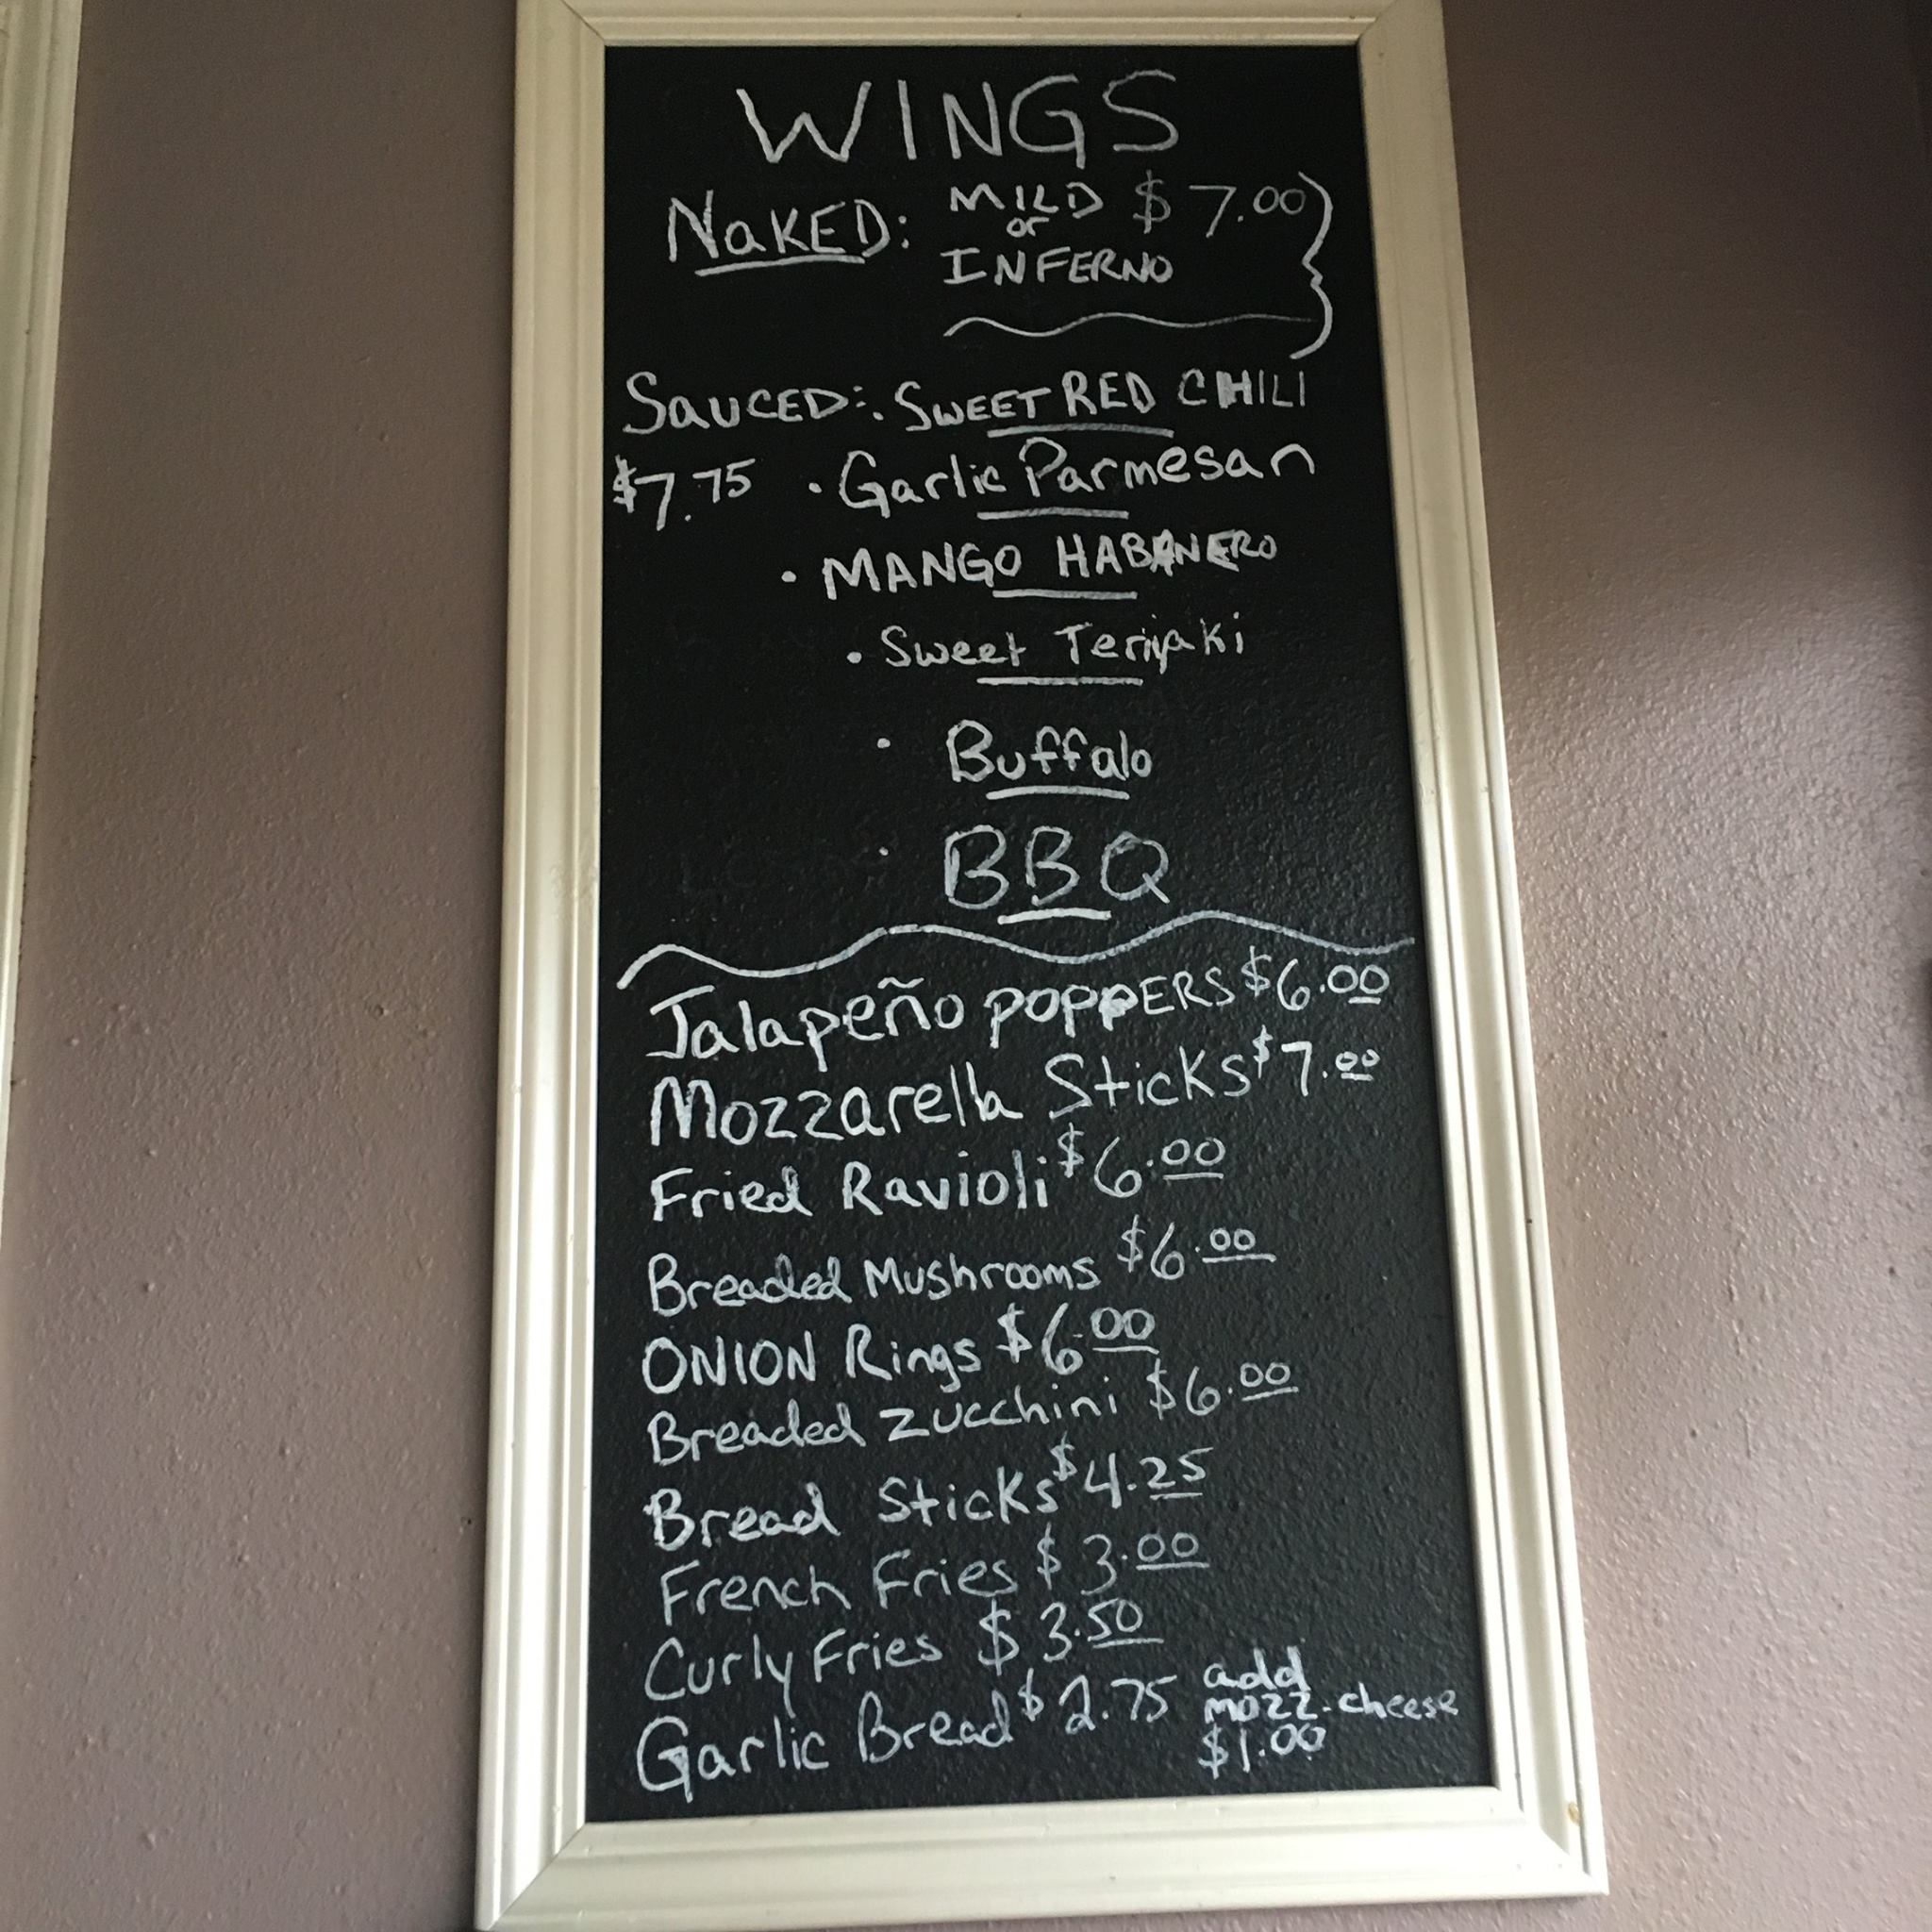 WINGS
NaKED: MILD $7.00
or
INFERNO
SaUCED: • SWEET RED CHILI
$7.75 • Garlic Parmesan
• MANGO HABANERO
• Sweet Teriyaki
• Buffalo
• BBQ
Jalapeño POPPERS $6.00
Mozzarella Sticks $7.00
Fried Ravioli $6.00
Breaded Mushrooms $6.00
ONION Rings $6.00
Breaded Zucchini $6.00
Bread Sticks $4.25
French Fries $3.00
Curly Fries $3.50
Garlic Bread $2.75 add
mozz. cheese
$1.00